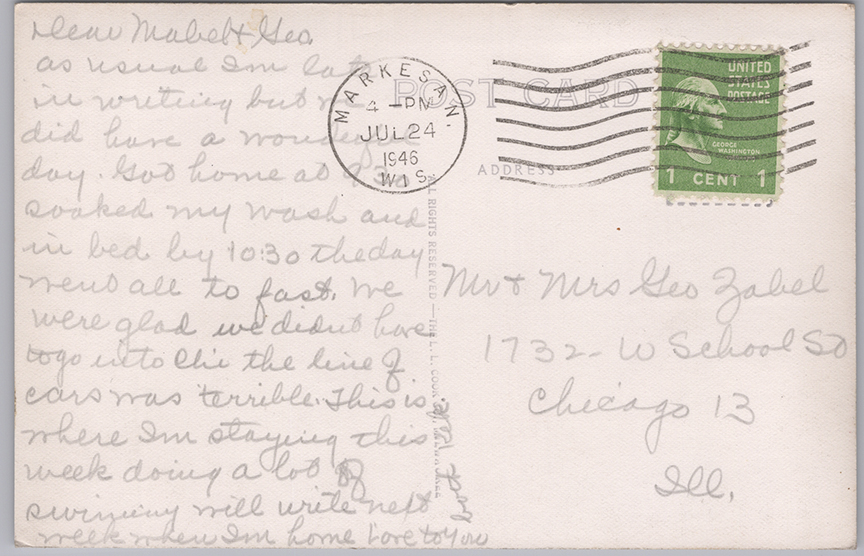 Dear Mabel & Geo
as usual Im late
in writing but we
did have a wonderful
day. Got home at 9 so
soaked my wash and
in bed by 10:30 the day
went all to fast. We
were glad we didnt have
to go into Chi the line of
cars was terrible. This is
where Im staying this
week doing a lot of
swimming will write next
week when Im home Love to You
both
MARKESAN.
4 - PM
JUL 24
1946
WIS
POST CARD
ADDRESS
ALL RIGHTS RESERVED — THE L. L. COOK
UNITED
STATES
POSTAGE
GEORGE
WASHINGTON
1 CENT 1
Mr & Mrs Geo Zabel
1732 - W School St
Chicago 13
Ill.